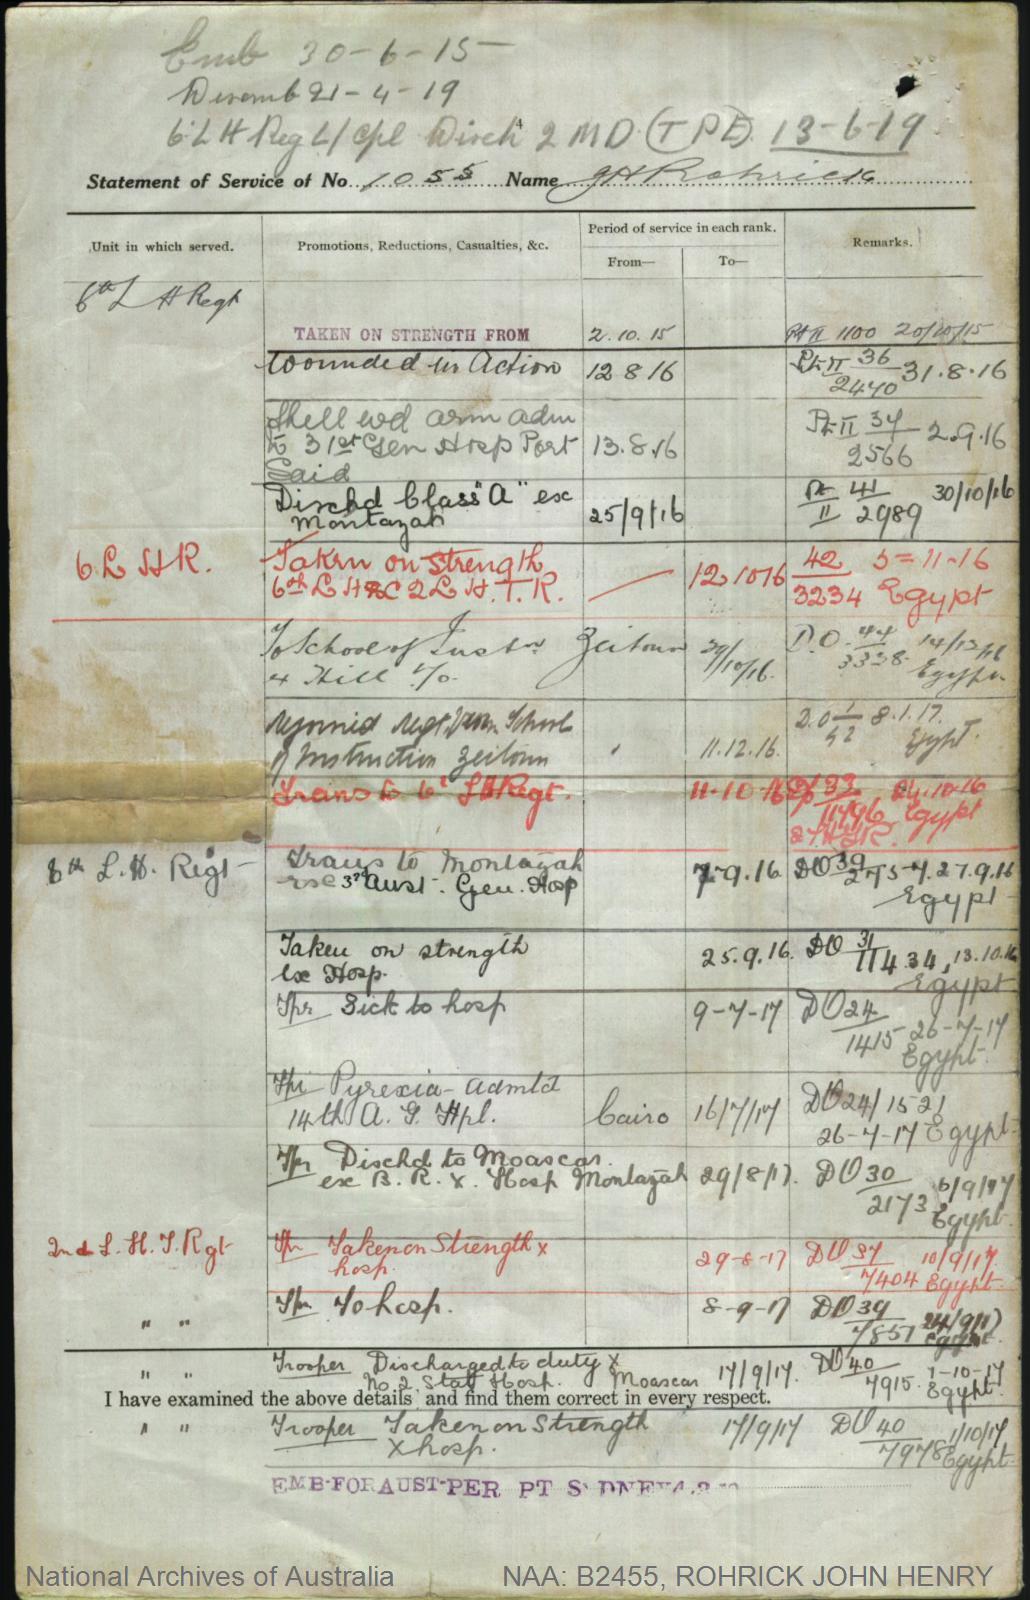 Emb 30-6-15
Disemb 21-4-19
6 L H Reg L/Cpl Disch 2 MD (TPE) 13-6-19
Statement of Service of No. 1055 Name J H Rohrick
Unit in which served. Promotions, Reductions, Casualties, &c. Period of service in each rank. Remarks.
From— To—
6th L H Regt
TAKEN ON STRENGTH FROM 2.10.15 Pt II 1100 20/10/15
Wounded in Action 12 8 16 Pt II 36/2470 31.8.16
Shell wd arm adm
to 31st Gen Hosp Port 13.8.16 Pt II 37/2566 2.9.16
Said
Dischd Class "A" ex
Montazah 25/9/16 Pt II 41/2989 30/10/16
6 L H R. Taken on strength
6th L H 2 L. H. T. R. 12 10 16 42/3234 5-11-16 Egypt
To School of Instn Zeitoun 29/10/16 D.O. 44/3338 14/12/16 Egypt
rejoined regt from School
of Instruction Zeitoun " 11.12.16. D.O 1/42 8.1.17. Egypt
Trans to 6th L H Regt. 11-10-16 33/11496 24.10.16 Egypt
6th L. H. Regt Trans to Montazah
exe 3rd Aust. Gen. Hosp 7-9.16. DO 39 27.9.16 Egypt
Taken on strength
exe Hosp. 25.9.16. DO 31/11434, 13.10.16 Egypt
Tpr Sick to hosp 9-7-17 DO 24/1415 26-7-17 Egypt
Tpr Pyrexia - admtd
14th A. G. Hpl. Cairo 16/7/17 DO 24/1521 26-7-17 Egypt
Tpr Dischd to Moascar.
ex B. R. X. Hosp Montazah 29/8/17. DO 30/2173 6/9/17 Egypt
2nd L. H. T. Rgt Tpr Taken on Strength x
hosp. 29-8-17 DO 37/7404 10/9/17. Egypt
" " Tpr To hosp. 8-9-17 DO 39/7851 24/9/17 Egypt
" " Trooper Discharged to duty x
No 2 Staty Hosp. Moascar 17/9/17. DO 40/7915. 1-10-17 Egypt
I have examined the above details and find them correct in every respect.
" " Trooper Taken on Strength
x hosp. 17/9/17 DO 40/7978 1/10/17 Egypt
EMB-FOR AUST-PER PT SYDNEY
National Archives of Australia NAA: B2455, ROHRICK JOHN HENRY